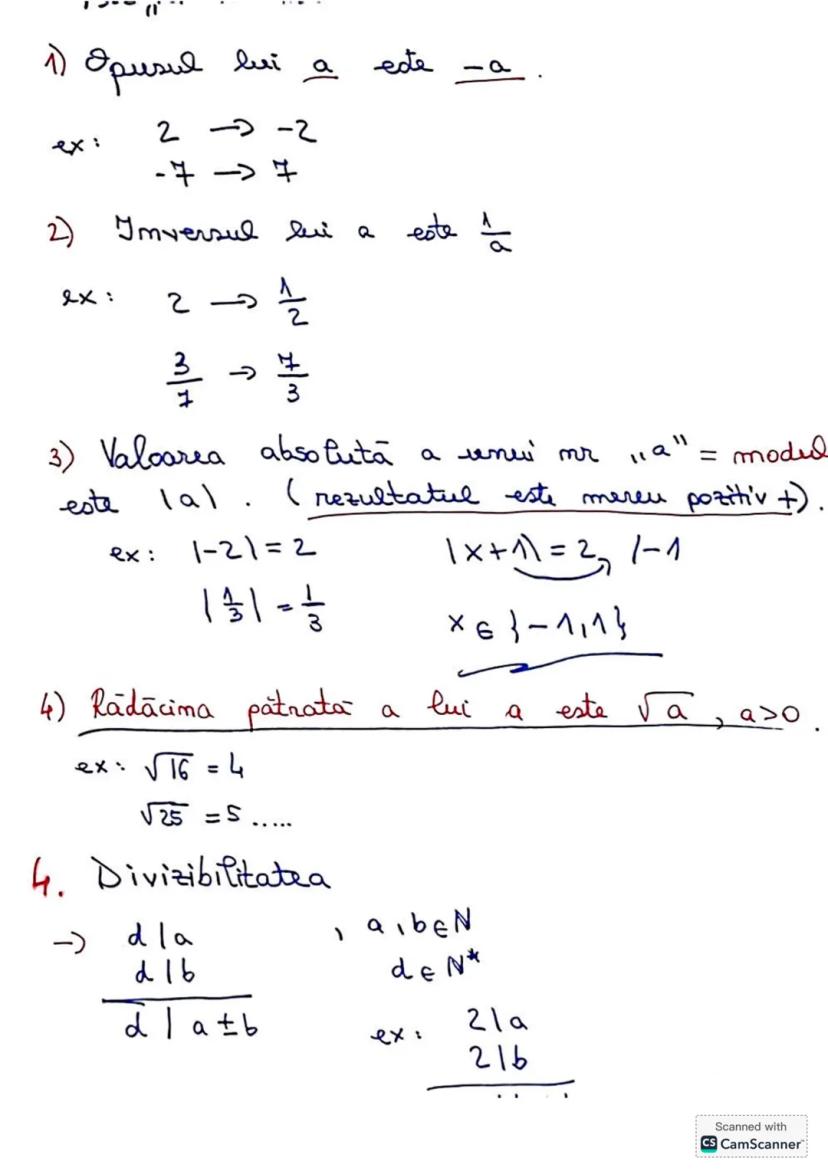 1) Opusul lui a este -a .
ex: 2 → -2
-7 → 7
2) Inversul lui a este 1/a
ex: 2 → 1/2
3/7 → 7/3
3) Valoarea absolută a unui nr „a" = modul
este |a| . ( rezultatul este mereu pozitiv +) .
ex: |-2| = 2
|1/3| = 1/3
|x+1| = 2 /-1
x ∈ {-1,1}
4) Rădăcina pătrată a lui a este √a , a>0 .
ex: √16 = 4
√25 = 5 .....
4. Divizibilitatea
→ d | a , a,b∈N
d | b d ∈ N*
d | a ± b
ex: 2|a
2|b
Scanned with
CS CamScanner